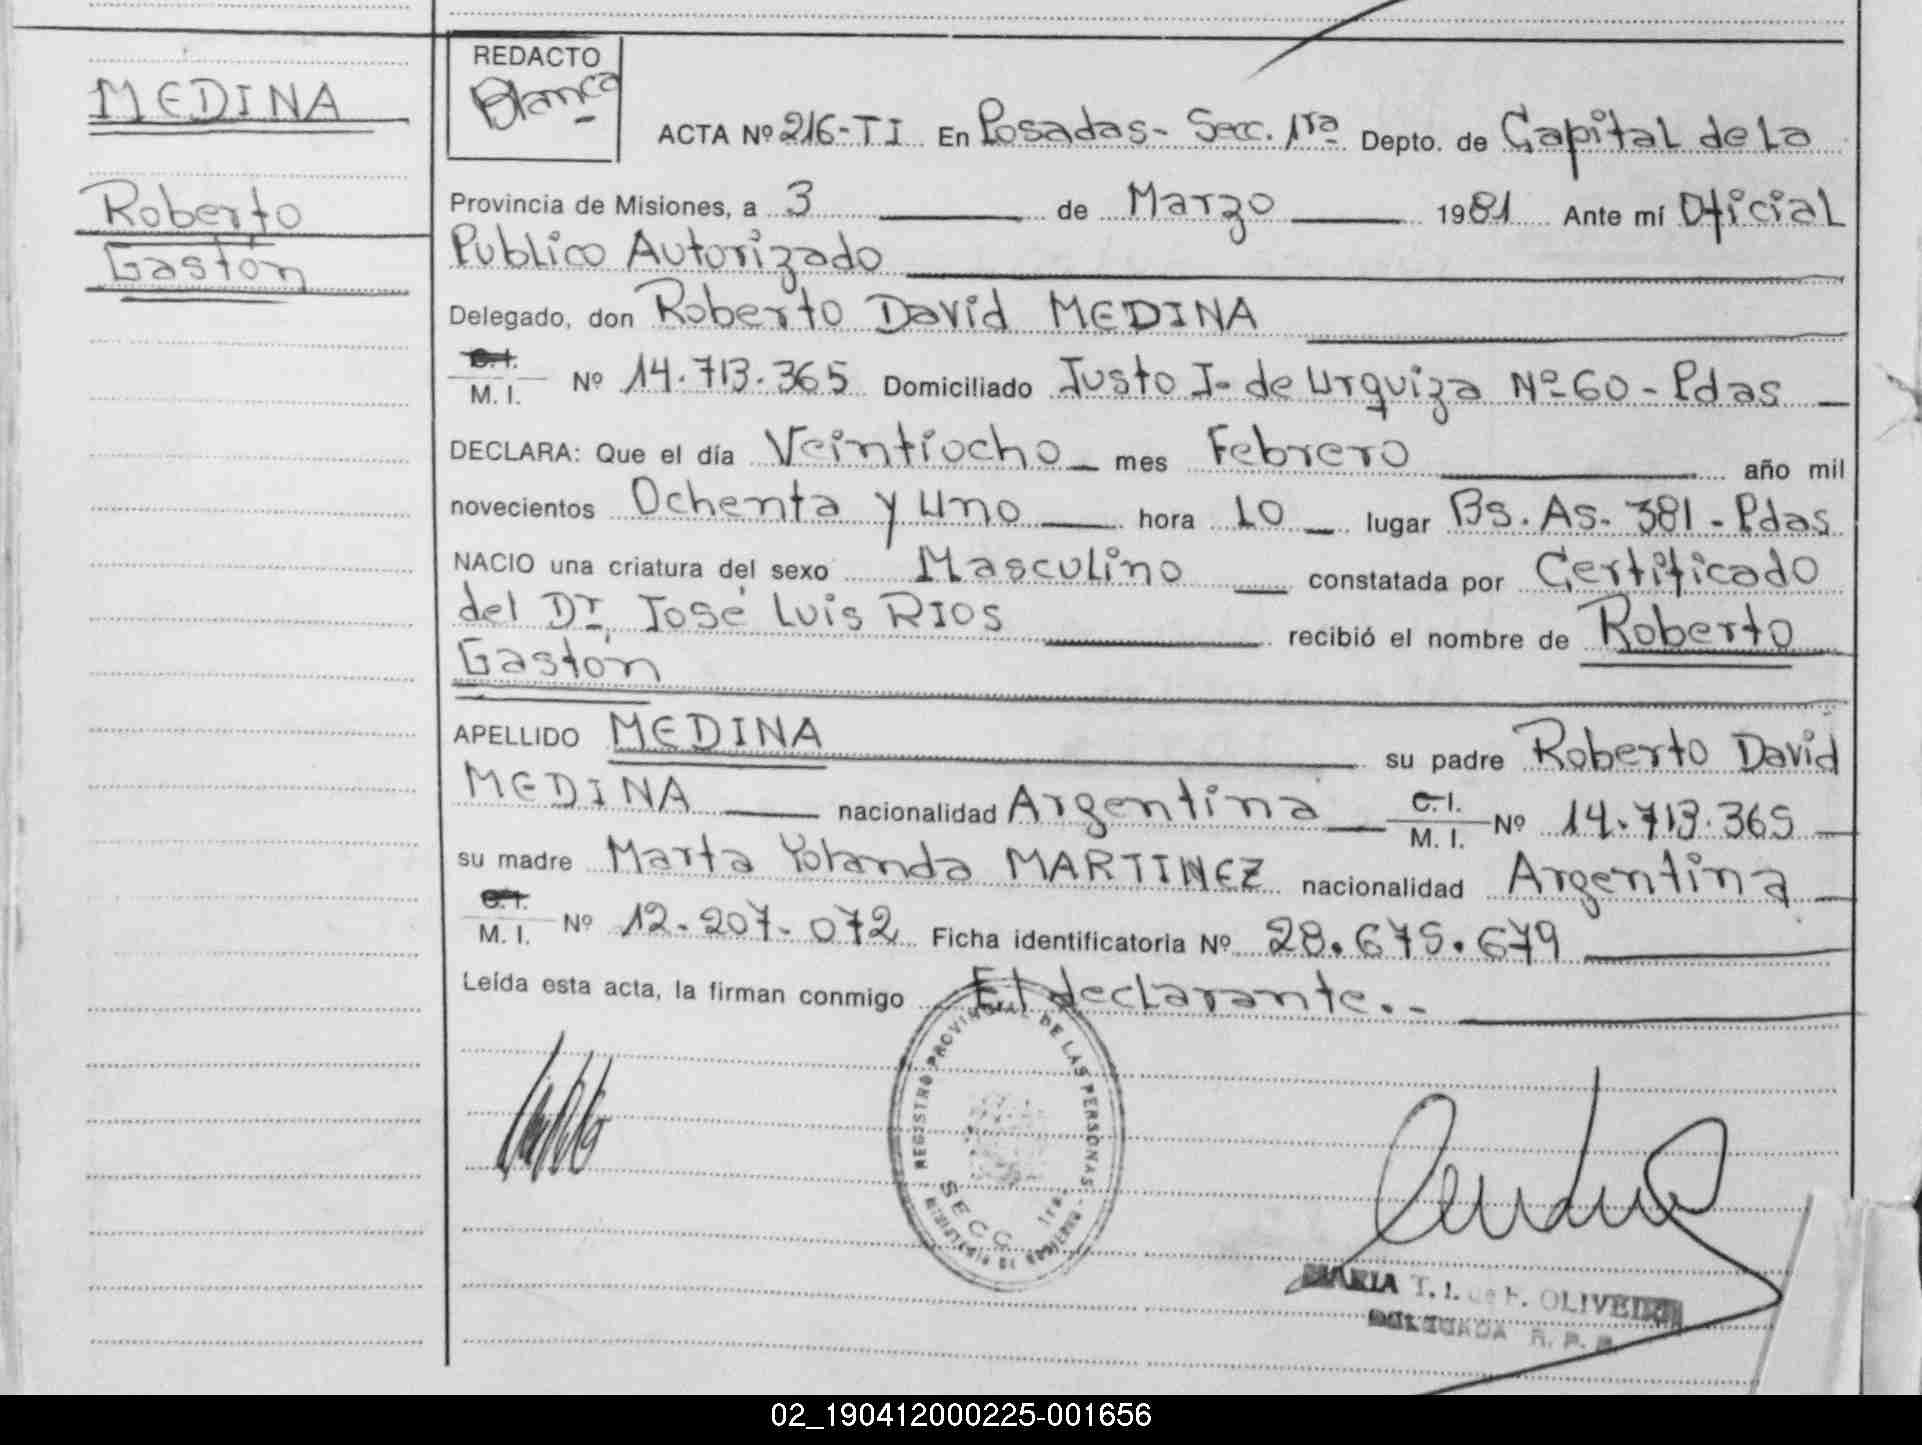 MEDINA
Roberto
Gastón
REDACTO
Blanca
ACTA Nº 216-TI En Posadas- Secc. 1ra Depto. de Capital de La
Provincia de Misiones, a 3 de Marzo 1981 Ante mí Oficial
Publico Autorizado
Delegado, don Roberto David MEDINA
C.I.
M. I. Nº 14.713.365 Domiciliado Justo J. de Urquiza Nº 60 - Pdas
DECLARA: Que el día Veintiocho mes Febrero año mil
novecientos Ochenta y uno hora 10 lugar Bs. As. 381 - Pdas
NACIO una criatura del sexo Masculino constatada por Certificado
del Dr. José Luis RIOS recibió el nombre de Roberto
Gastón
APELLIDO MEDINA su padre Roberto David
MEDINA nacionalidad Argentina C.I. M. I. Nº 14.713.365
su madre Marta Yolanda MARTINEZ nacionalidad Argentina
C.I.
M. I. Nº 12.207.072 Ficha identificatoria Nº 28.675.679
Leída esta acta, la firman conmigo El declarante..
REGISTRO PROVINCIAL DE LAS PERSONAS
SECC. 1ra.
MINISTERIO DE GOBIERNO
MARIA T. I. de F. OLIVEIRA
DELEGADA R. P. P.
02_190412000225-001656